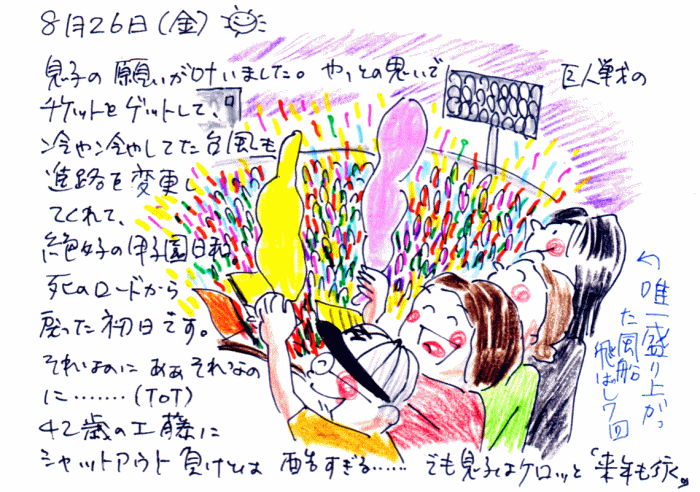 8月26日(金)
息子の願いが叶いました。やっとの思いで巨人戦の
チケットをゲットして、
冷や冷やしてた台風も
進路を変更し
てくれて、
絶好の甲園日和。
死のロードから
戻った初日です。
それなのに ああそれなの
に……(ToT)
42歳の工藤に
シャットアウト負けとは 酷すぎる…… でも息子はケロッと「来年も行く」
唯一盛り上がっ
た風船
飛ばし7回